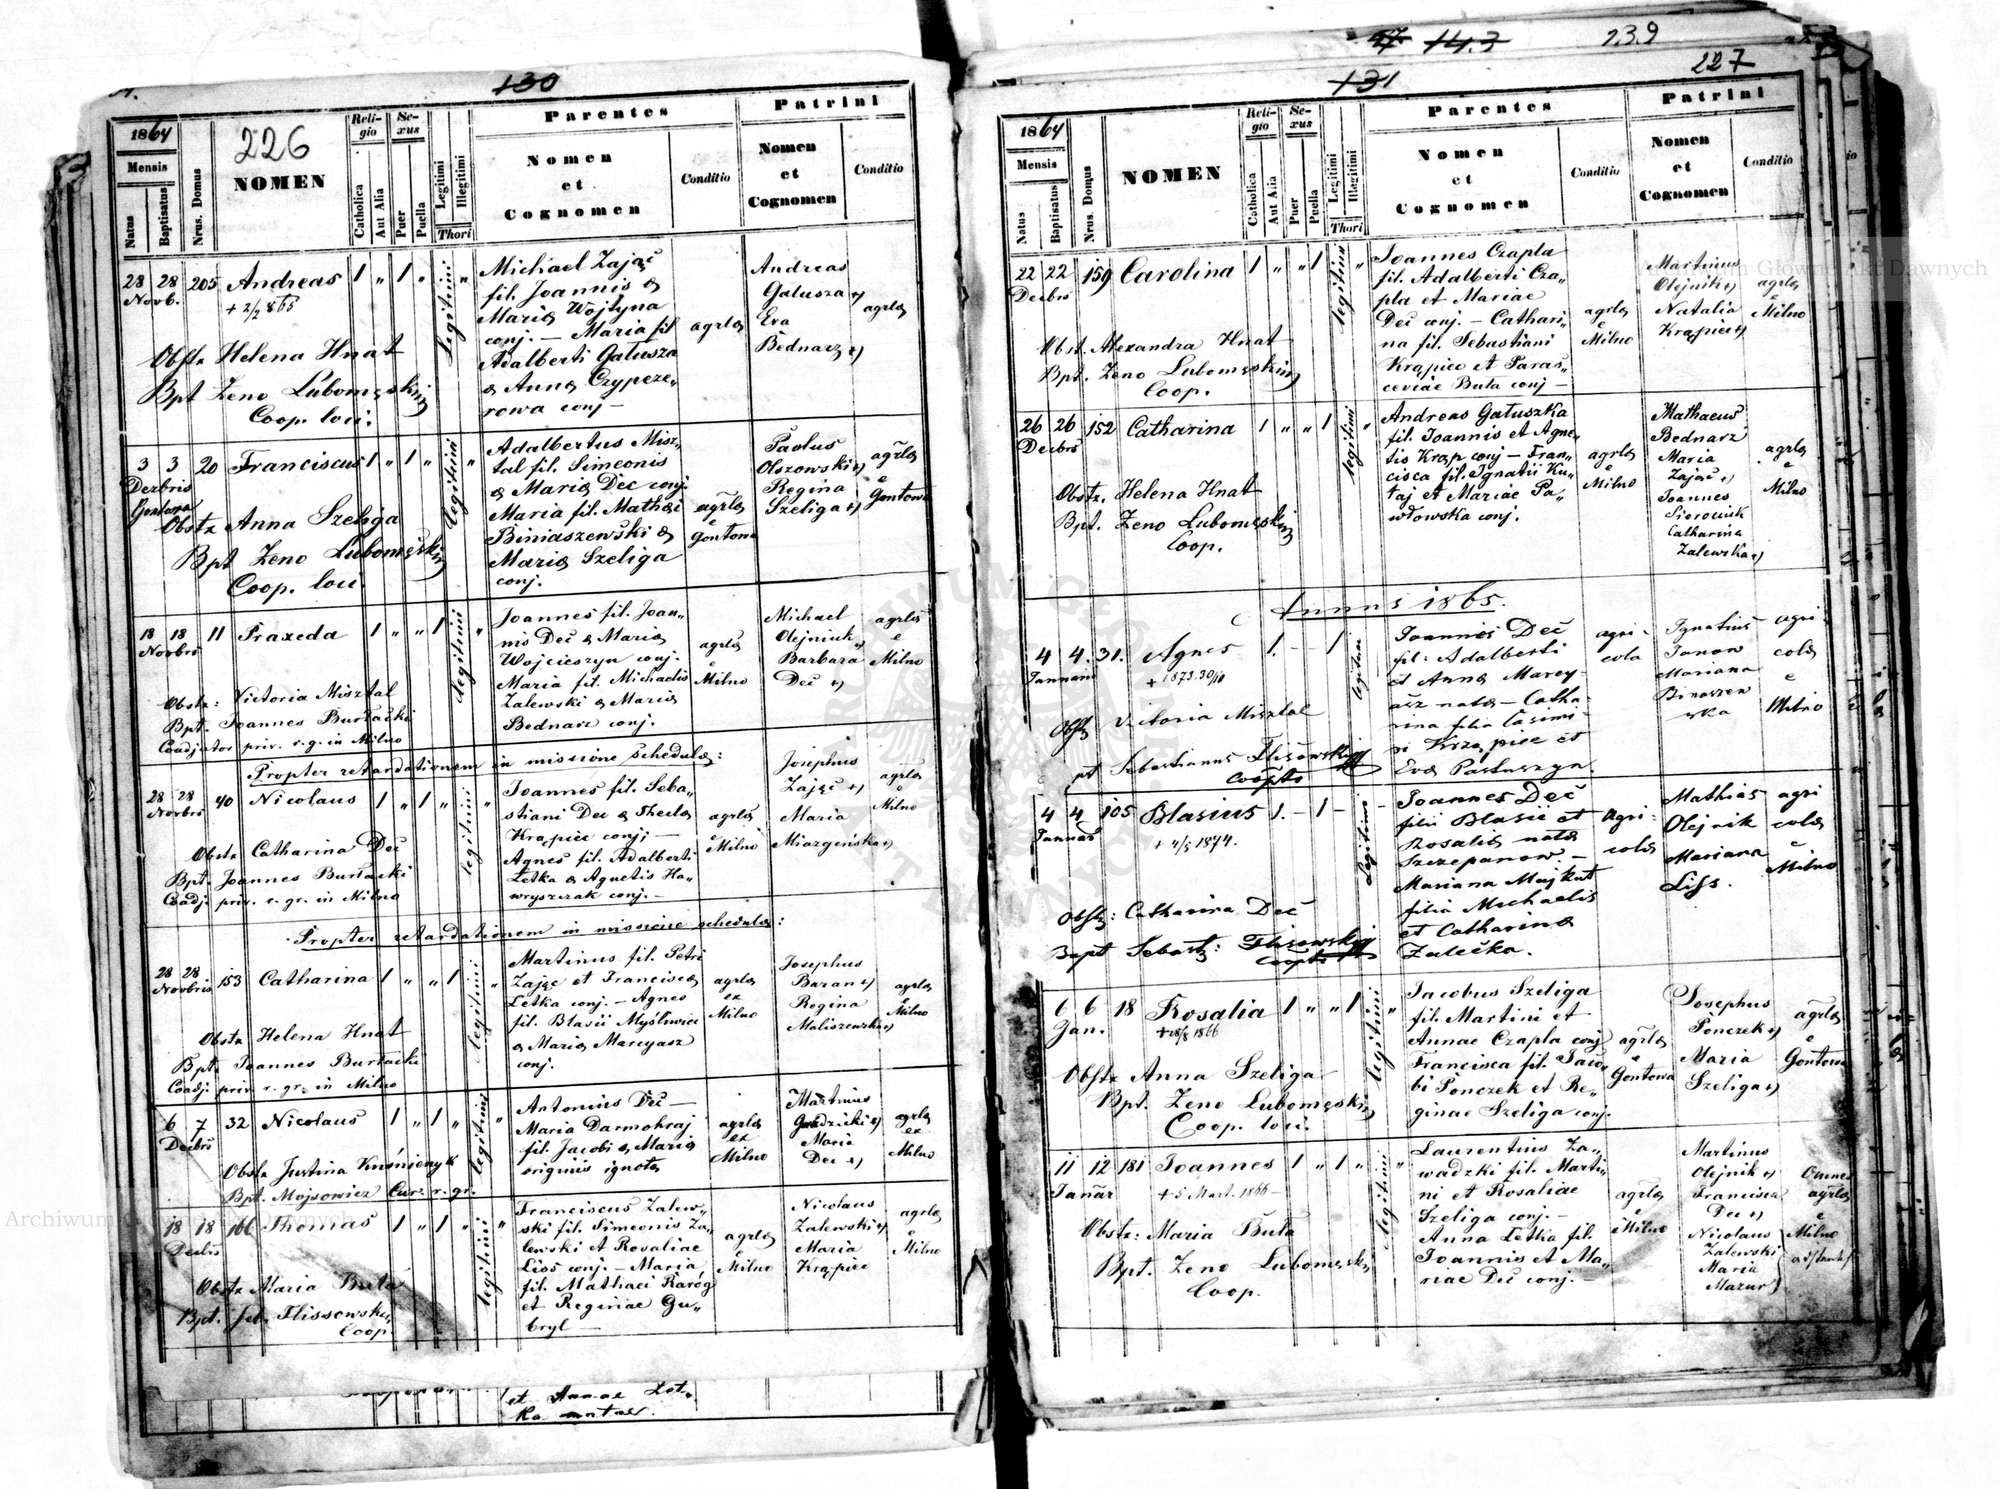 130
1864
Mensis
Natus
Baptisatus
Nrus. Domus
226
NOMEN
Religio
Catholica
Aut Alia
Sexus
Puer
Puella
Legitimi
Illegitimi
Thori
Parentes
Nomen
et
Cognomen
Conditio
Patrini
Nomen
et
Cognomen
Conditio
28 28 205 Andreas 1 „ 1 „ Legitimi „
Novb.
Obstz Helena Hnat
Bpt Zeno Lubomęski
Coop. loci.
Michael Zając
fil. Joannis &
Maria Wojtyna
conj. — Maria fil
Adalberti Gałusza
& Anna Czypcze„
rowa conj —
agrla
Andreas
Gałusza
Eva
Bednarz
agrla
3 3 20 Franciscus 1 „ 1 „ legitimi „
Dezbris
Gontowa
Obstz Anna Szeliga
Bpt Zeno Lubomęski
Coop. loci
Adalbertus Misz„
tal fil. Simeonis
& Maria Dec conj.
Maria fil. Mathei
Biniaszewski &
Maria Szeliga
conj.
agrla
e
Gontowa
Paolus
Olszowski
Regina
Szeliga
agrla
e
Gontowa
18 18 11 Praxeda 1 „ „ 1 legitimi „
Novbris
Obstz: Victoria Misztal
Bpt. Joannes Burtacki
Coadjutor priv. r. g. in Milno
Joannes fil. Joan„
nis Deć & Maria
Wojcieszyn conj.
Maria fil. Michaelis
Zalewski & Maria
Bednarz conj.
agrla
e
Milno
Michael
Olejniuk
Barbara
Deć
agrla
e
Milno
Propter retardationem in missione schedula:
28 28 40 Nicolaus 1 „ 1 „ legitimi „
Novbris
Obstz Catharina Deć
Bpt. Joannes Burtacki
Coadj. priv. r. gr. in Milno
Joannes fil. Seba„
stiani Dec & Thecla
Krąpiec conj; —
Agnes fil. Adalberti
Letka & Agnetis Ha„
wryszczak conj. —
agrla
e
Milno
Josephus
Zając
Maria
Miazgińska
agrla
e
Milno
Propter retardationem in missione schedula:
28 28 153 Catharina 1 „ „ 1 legitimi „
Novbris
Obstz Helena Hnat
Bpt. Joannes Burtacki
Coadj. priv. r. gr. in Milno
Martinus fil. Petri
Zając et Francisca
Letka conj. — Agnes
fil. Blasii Myśliwiec
& Maria Marcyasz
conj.
agrla
ex
Milno
Josephus
Baran
Regina
Maliszewska
agrla
e
Milno
6 7 32 Nicolaus 1 „ 1 „ legitimi „
Decbris
Obstz Justina Kuśnienyk
Bpt. Mojsowicz Cur. r. gr.
Antonius Deć —
Maria Darmohraj
fil. Jacobi & Maria
originis ignota
agrla
ex
Milno
Martinus
Maria
Dec
agrla
ex
Milno
18 18 166 Thomas 1 „ 1 „ legitimi „
Decbris
Obstz Maria Buta
Bpt. Seb. Flissowski
Coop.
Franciscus Zalew„
ski fil. Simeonis Za„
lewski et Rosaliae
Liss conj. — Maria
fil. Mathaei Raróg
et Reginae Gu„
bryl —
agrla
e
Milno
Nicolaus
Zalewski
Maria
Krąpiec
agrla
e
Milno
et Annae Let„
ka natae.
143
139
131
227
1864
Mensis
Natus
Baptisatus
Nrus. Domus
NOMEN
Religio
Catholica
Aut Alia
Sexus
Puer
Puella
Legitimi
Illegitimi
Thori
Parentes
Nomen
et
Cognomen
Conditio
Patrini
Nomen
et
Cognomen
Conditio
22 22 159 Carolina 1 „ „ 1 legitimi „
Decbris
Obst. Alexandra Hnat
Bpt. Zeno Lubomęski
Coop.
Joannes Czapla
fil. Adalberti Cza„
pla et Mariae
Deć conj. — Cathari„
na fil. Sebastiani
Krąpiec et Paras„
ceviae Buta conj —
agrla
e
Milno
Martinus
Olejnik
Natalia
Krąpiec
agrla
e
Milno
26 26 152 Catharina 1 „ „ 1 legitimi „
Decbris
Obstz. Helena Hnat
Bpt. Zeno Lubomęski
Coop.
Andreas Gałuszka
fil. Joannis et Agne„
tis Krąp conj — Fran„
cisca fil. Ignatii Ku„
taj et Mariae Pa„
włowska conj.
agrla
e
Milno
Mathaeus
Bednarz
Maria
Zając
Joannes
Sierociuk
Catharina
Zalewska
agrla
e
Milno
Annus 1865.
4 4. 31. Agnes 1. — — 1 legitimi
Januarii
+ 1873.30/10
Obstz Victoria Misztal
Bpt Sebastianus Flisowski
Coopr
Joannes Deć
fil: Adalberti
et Anna Marcy„
asz nata — Catha„
rina filia Casimi„
ri Krząpiec et
Eva Pastuszyn.
agri„
cola
Ignatius
Janow
Mariana
Binaszew
ska
agri„
cola
e
Milno
4 4 105 Blasius 1. — 1 — Legitimi —
Januar
+ 4/5 1874.
Obstz: Catharina Deć
Bapt Sebast: Flisowski
Coopr
Joannes Deć
filii Blasii et
Rosalia nata
Szczepanow. —
Mariana Majkut
filia Michaelis
et Catharina
Zalecka.
agri„
cola
Mathias
Olejnik
Mariana
Liss.
agri
cola
e
Milno
6 6 18 Rosalia 1 „ „ 1 legitimi „
Jan.
+ 28/8 1866
Obstz Anna Szeliga
Bpt. Zeno Lubomęski
Coop. loci.
Jacobus Szeliga
fil. Martini et
Annae Czapla conj
Francisca fil. Jaco„
bi Pończek et Re„
ginae Szeliga conj.
agrla
e
Gontowa
Josephus
Pończek
Maria
Szeliga
agrla
e
Gontowa
11 12 181 Joannes 1 „ 1 „ legitimi „
Januar
+ 5 Mart. 1866 —
Obstz: Maria Buta
Bpt. Zeno Lubomęski
Coop.
Laurentius Za„
wadzki fil. Marti„
ni et Rosaliae
Szeliga conj. —
Anna Letka fil.
Joannis et Ma„
riae Deć conj. —
agrla
e Milno
Martinus
Olejnik
Francisca
Dec
Nicolaus
Zalewski
Maria
Mazur
Omnes
agrla
e
Milno
Archiwum Główne Akt Dawnych